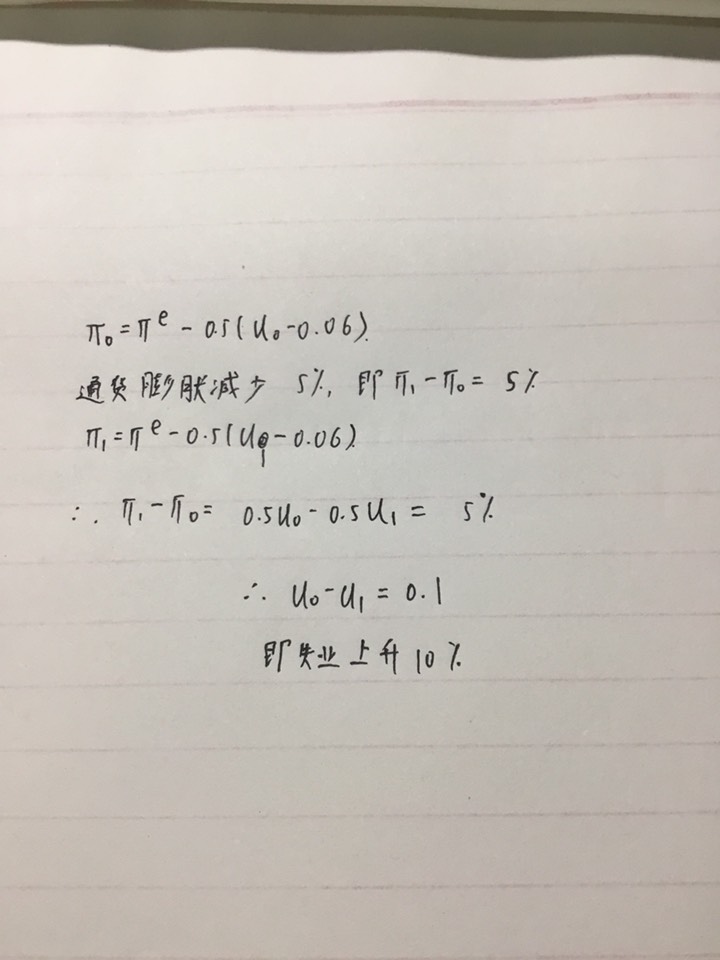 π₀ = πᵉ - 0.5(u₀ - 0.06)
通货膨胀减少 5%, 即 π₁ - π₀ = 5%
π₁ = πᵉ - 0.5(u₁ - 0.06)
∴ π₁ - π₀ = 0.5u₀ - 0.5u₁ = 5%
∴ u₀ - u₁ = 0.1
即失业上升 10%